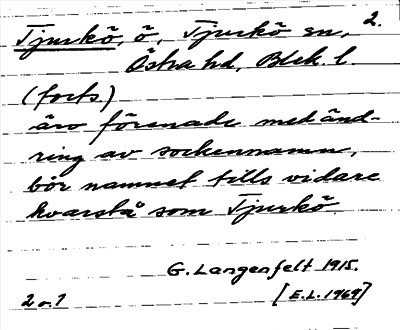 2.
Tjurkö, ö, Tjurkö sn,
Östra hd, Blek. l.
(forts.)
äro förenade med änd-
ring av sockennamn,
bör namnet tills vidare
kvarstå som Tjurkö.
G. Langenfelt 1915.
2 o. 1 [E.L. 1969]